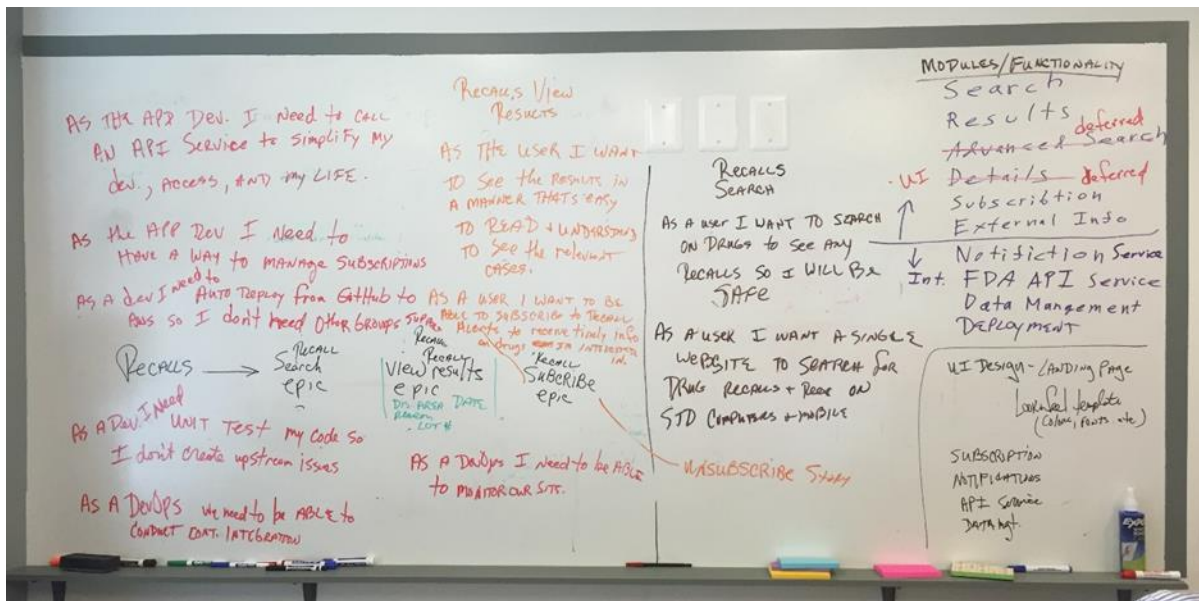 AS THE APP DEV. I NEED TO CALL
AN API SERVICE to SIMPLIFY MY
dev., ACCESS, AND my LIFE.
AS the APP DEV I NEED to
HAVE A WAY to MANAGE SUBSCRIPTIONS
AS A dev I need to
AUTO DEPLOY from GitHub to
so I don't need Other Groups
RECALLS →
RECALL
Search
epic
AS A Dev. I need
UNIT TEST my code so
I don't create upstream issues
AS A DEVOPS we need to be ABLE to
CONDUCT CONT. INTEGRATION
RECALLS View
RESULTS
AS THE USER I WANT
TO See the RESULTS IN
A MANNER THAT'S EASY
TO READ + UNDERSTAND
TO See the relevant
CASES.
AS A USER I WANT TO BE
ABLE TO SUBSCRIBE to RECALL
Alerts to receive timely info
on drugs I'm INTERESTED
IN.
Recall
RECALL
View results
epic
AREA DATE
REASON
LOT #
RECALL
SUBCRIBE
epic
AS A DevOps I need to be ABLE
to MONITOR OUR SITE.
UNSUBSCRIBE Story
RECALLS
SEARCH
AS A user I WANT TO SEARCH
ON DRUGS to SEE ANY
RECALLS SO I WILL BE
SAFE
AS A USER I WANT A SINGLE
WEBSITE TO SEARCH for
DRUG RECALLS + ON
STD COMPUTERS + MOBILE
MODULES/FUNCTIONALITY
Search
Results
deferred
Advanced Search
UI Details deferred
Subscribtion
External Info
Int. Notifiction Service
FDA API Service
Data Mangement
DEPLOYMENT
UI Design - LANDING PAGE
Look & feel template
(Colors, fonts etc)
SUBSCRIPTION
NOTIFICATIONS
API Service
DATA Mgt.
EXPO